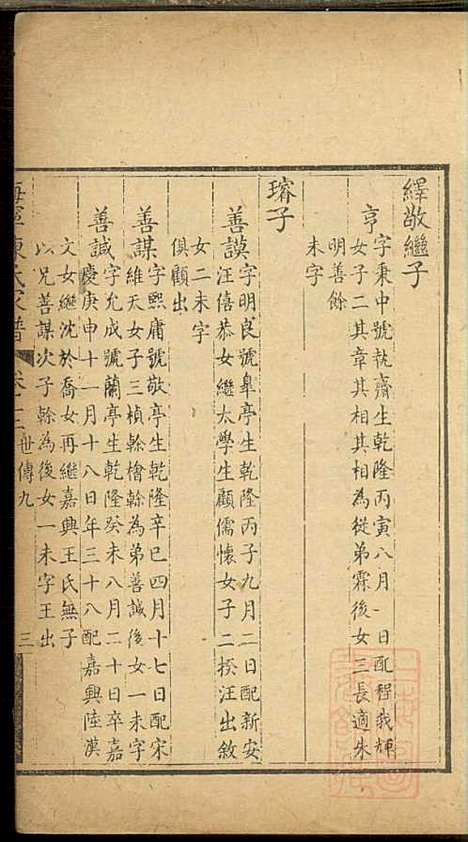 繹敬繼子
亨
字秉中號執齋生乾隆丙寅八月一日配程載輝
女子二其章其相其相為從弟霖後女三長適朱
明善餘
未字
璿子
善謨
字明良號皐亭生乾隆丙子九月二日配新安
汪僖恭女繼太學生顧儒懷女子二揆汪出敘
女二未字
俱顧出
善謀
字熙庸號敬亭生乾隆辛巳四月十七日配宋
維天女子三楨榦檜榦為弟善諴後女一未字
善諴
字允成號蘭亭生乾隆癸未八月二十日卒嘉
慶庚申十一月十八日年三十八配嘉興陸漢
文女繼沈於喬女再繼嘉興王氏無子
以兄善謀次子榦為後女一未字王出
海寧陳氏家譜 卷十二 世傳九 三